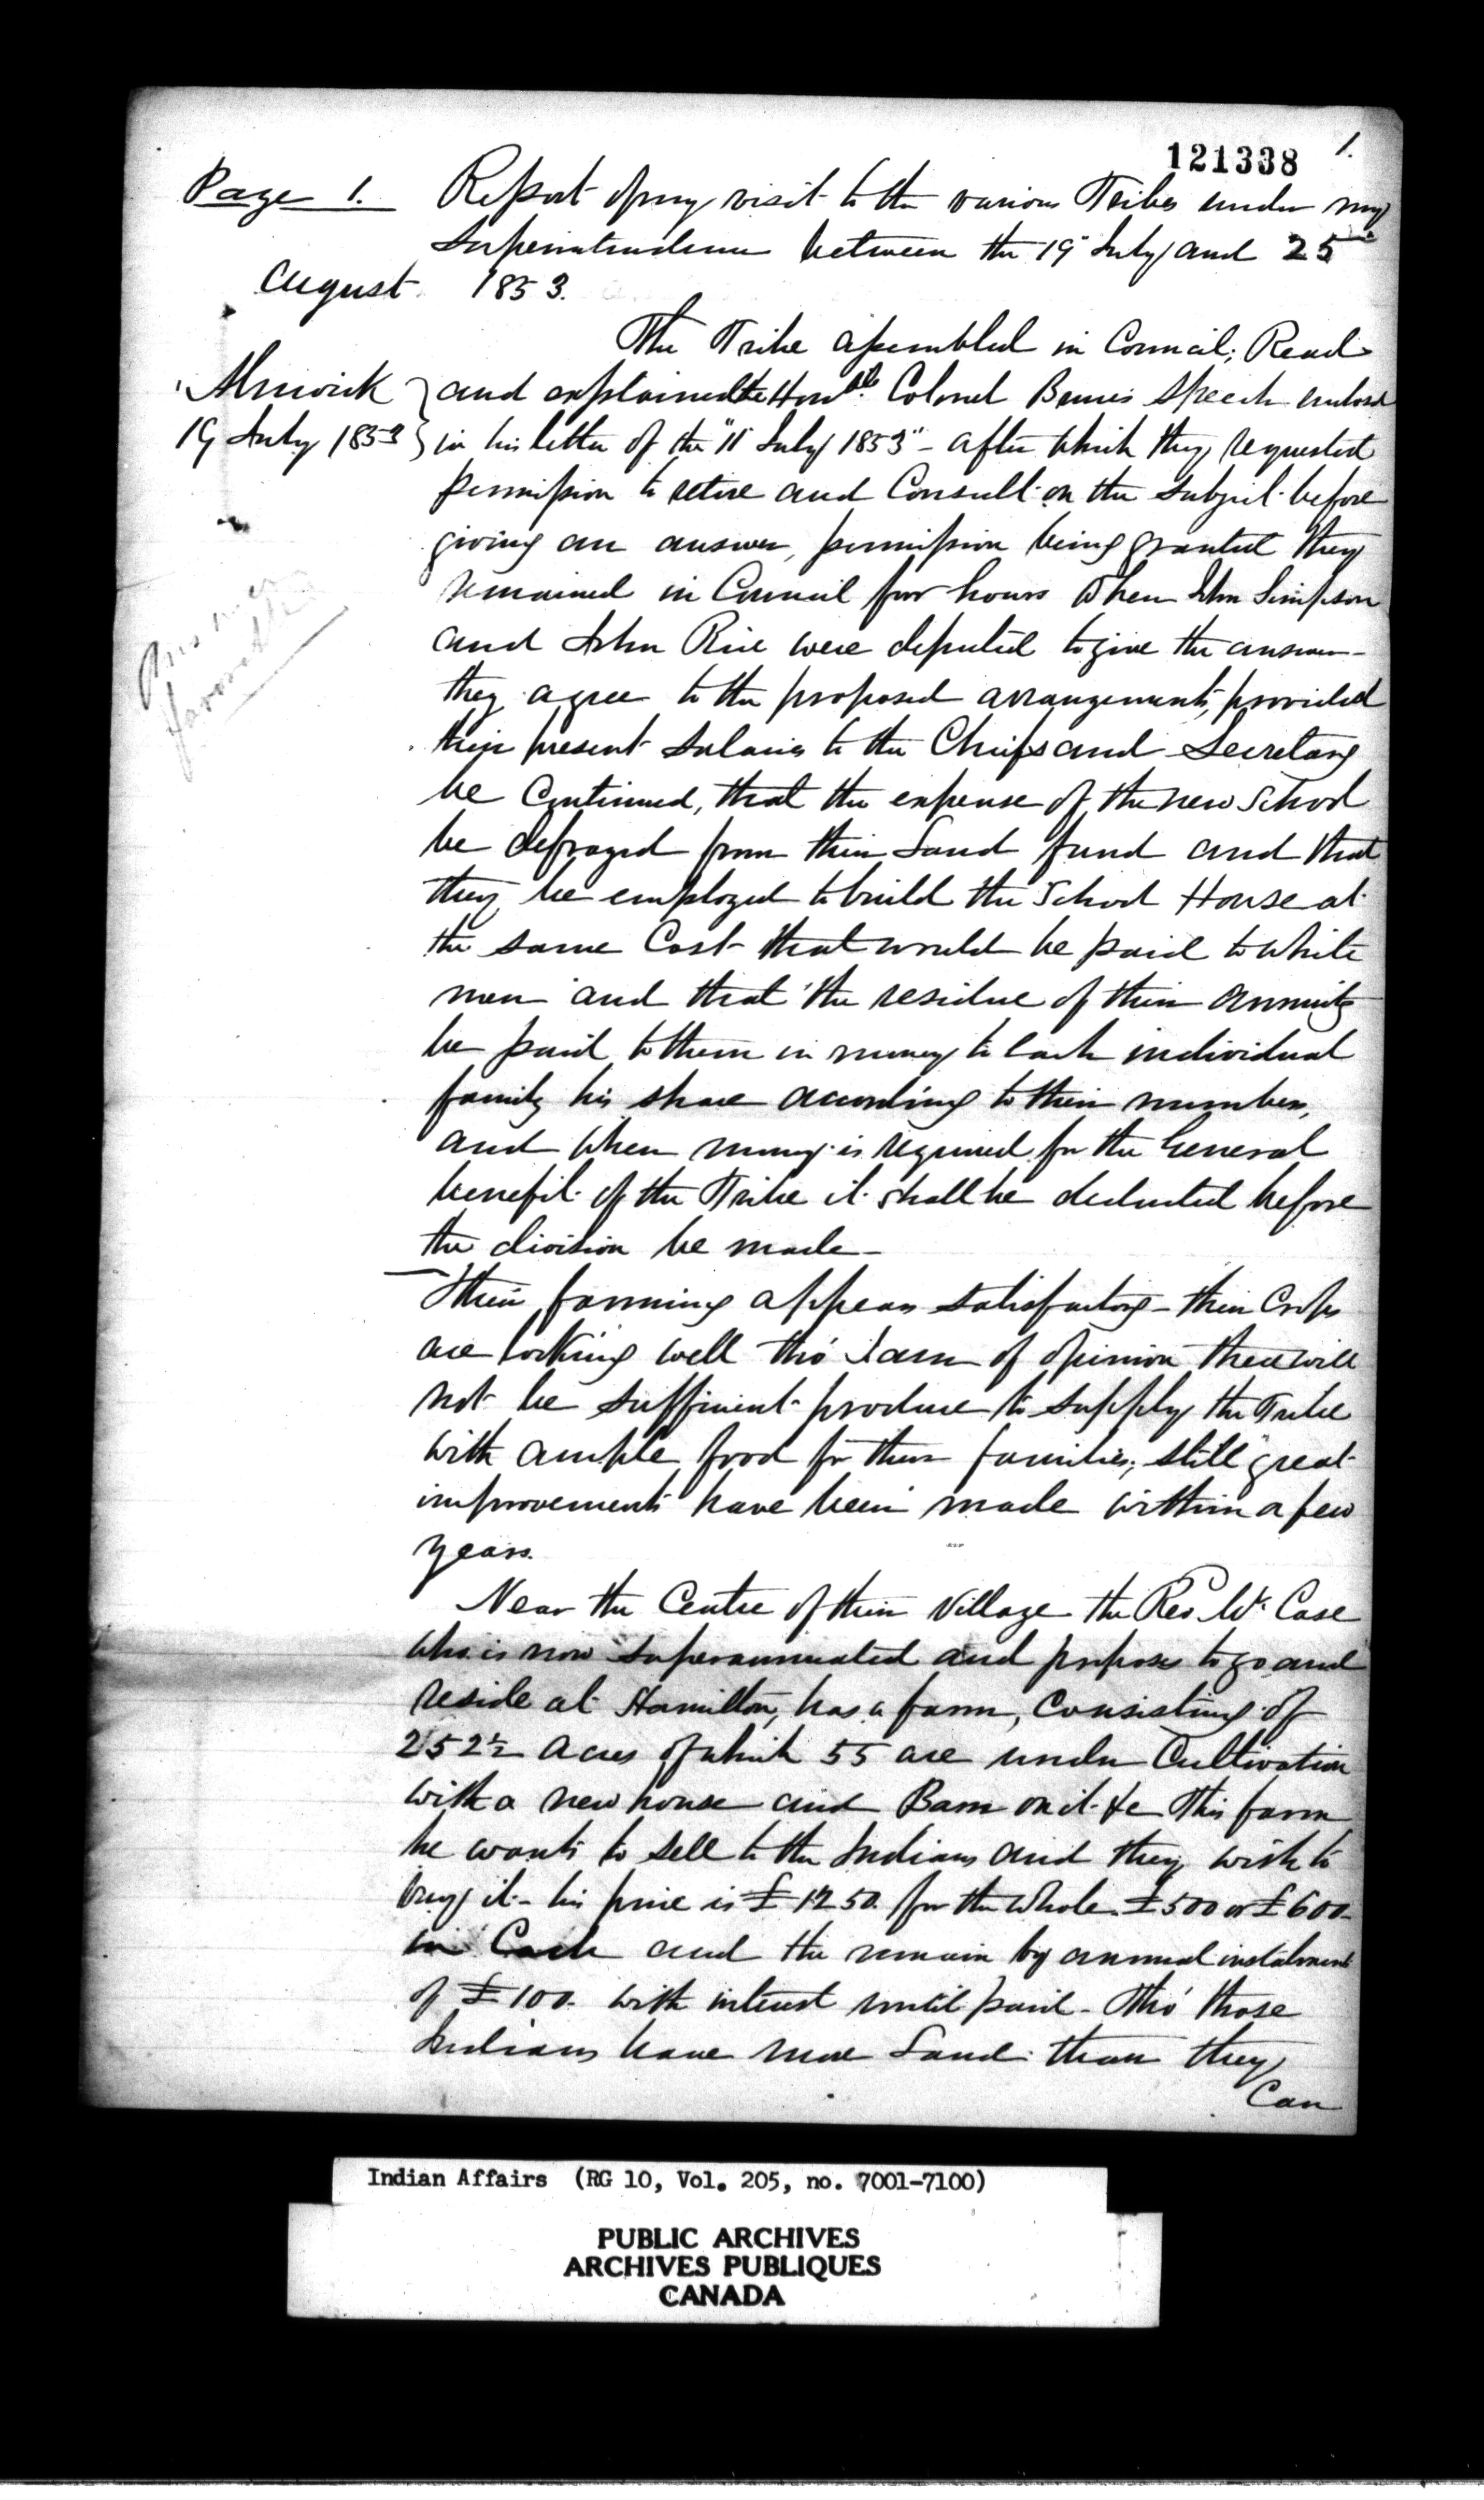 121338 1.
Page 1. Report of my visit to the various Tribes under my
Superintendence between the 19" July and 25th
August 1853.
The Tribe assembled in Council; Read
Alnwick and explained the Honble. Colonel Bruces Speech enclosed
19 July 1853 in his letter of the "11 July 1853" - after which they requested
permission to retire and Consult on the subject before
giving an answer, permission being granted they
remained in Council four hours when John Simpson
and John Rice were deputed to give the answer -
they agree to the proposed arrangements, provided
their present Salaries to the Chiefs and Secretary
be Continued, that the expense of the new School
be defrayed from their Land fund and that
they be employed to build the School House at
the same Cost that would be paid to white
men and that the residue of their annuity
be paid to them in money to each individual
family his share according to their number,
and when money is required for the General
benefit of the Tribe it shall be deducted before
the division be made -
Their farming appears satisfactory - their Crops
are looking well tho' I am of opinion there will
not be sufficient produce to supply the Tribe
with ample food for their families; still great
improvements have been made within a few
years.
Near the Centre of their Village the Rev. Wm. Case
who is now superannuated and proposes to go and
reside at Hamilton, has a farm, Consisting of
252½ Acres of which 55 are under Cultivation
with a new house and Barn on it &c This farm
he wants to sell to the Indians and they wish to
buy it - his price is £1250. for the whole. £500 or £600 -
in Cash and the remain by annual instalment
of £100. with interest until paid - Tho' those
Indians have more Land than they
Can
Answer
favorable
Indian Affairs (RG 10, Vol. 205, no. 7001-7100)
PUBLIC ARCHIVES
ARCHIVES PUBLIQUES
CANADA